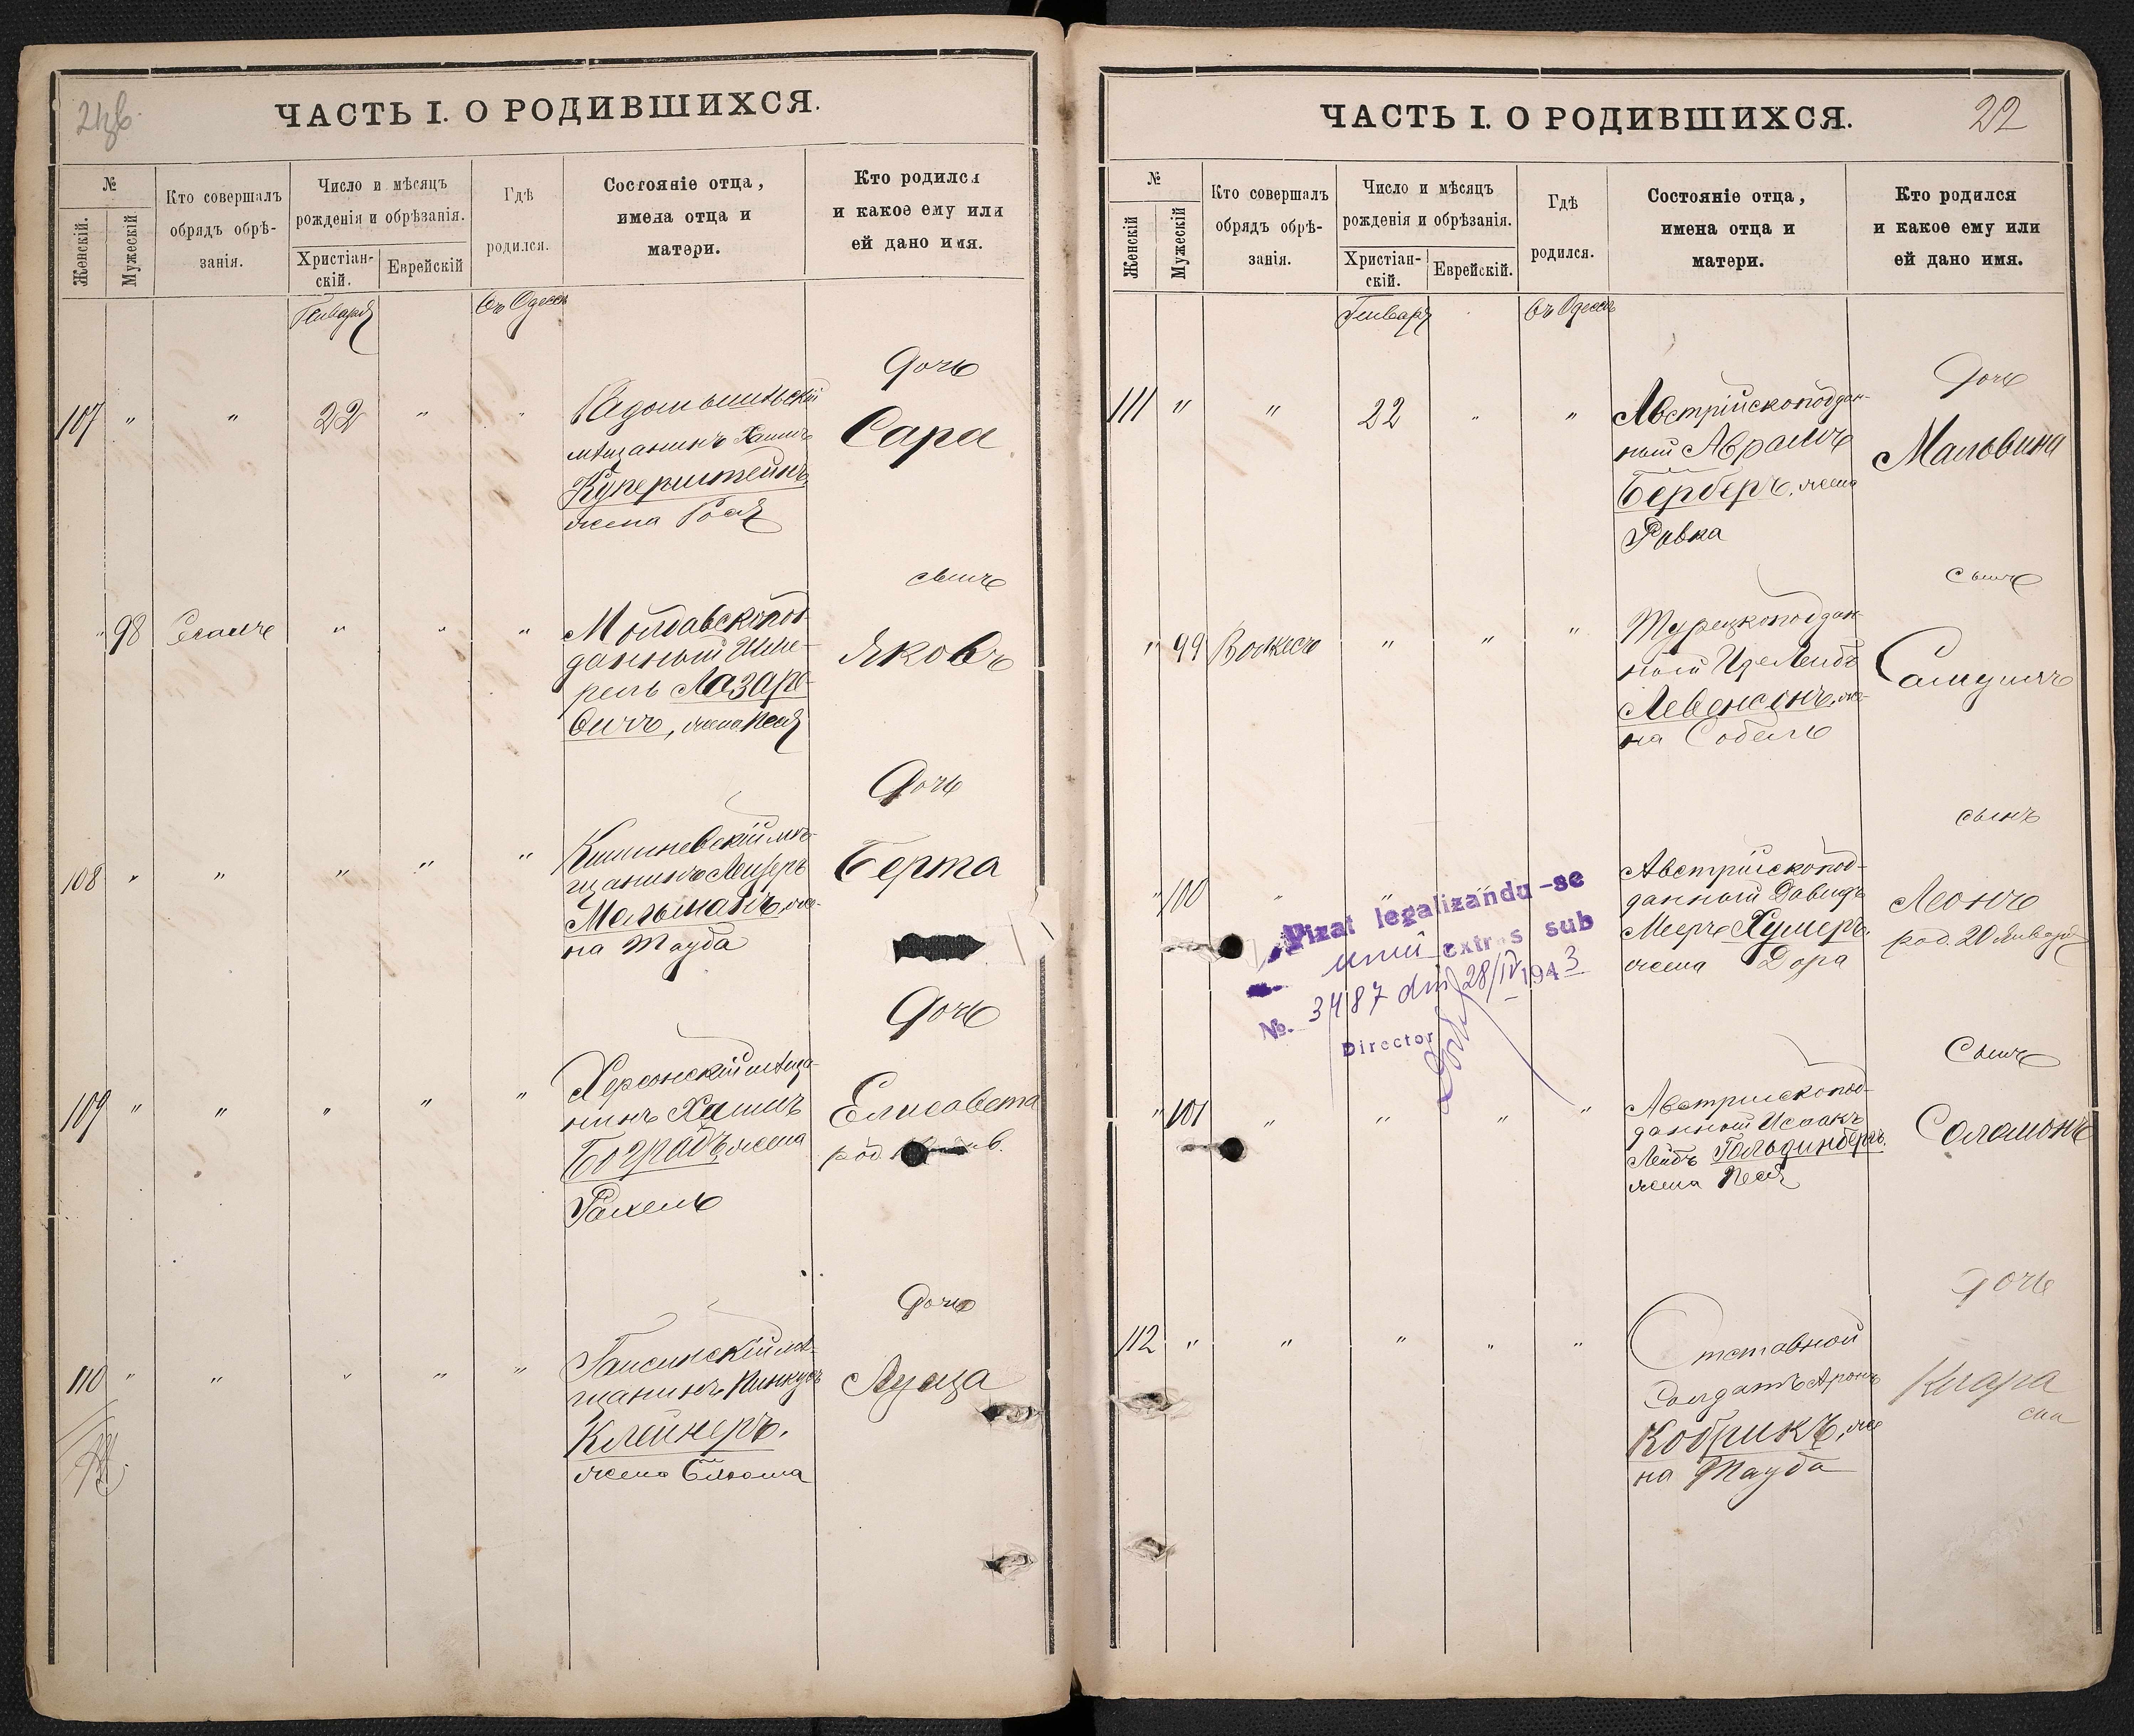 ЧАСТЬ I. О РОДИВШИХСЯ.
№
Женскій.
Мужескій
Кто совершалъ
обрядъ обрѣ-
занія.
Число и мѣсяцъ
рожденія и обрѣзанія.
Христіан-
скій.
Еврейскій
Гдѣ
родился.
Состояніе отца,
имена отца и
матери.
Кто родился
и какое ему или
ей дано имя.
Января
Въ Одессѣ
107 " " 22 "
мѣщанинъ Хаимъ
Куперштейнъ,
жена Рося
Дочь
Сара
" 98 " " "
Молдавскопод-
данный
Лазаре-
вичъ, жена Песя
сынъ
Яковъ
108 " " " " "
Кишиневскій мѣ-
щанинъ Лейзеръ
Мальманъ, же-
на Тауба
Дочь
Берта
109 " " " " "
Херсонскій мѣща-
нинъ Хаимъ
Боградъ, жена
Рахель
Дочь
Елисавета
род.
110 " " " " "
Гайсинскій мѣ-
щанинъ Пинкусъ
Клейнеръ,
жена
Дочь
Луиза
ЧАСТЬ I. О РОДИВШИХСЯ.
22
№
Женскій
Мужескій
Кто совершалъ
обрядъ обрѣ-
занія.
Число и мѣсяцъ
рожденія и обрѣзанія.
Христіан-
скій.
Еврейскій.
Гдѣ
родился.
Состояніе отца,
имена отца и
матери.
Кто родился
и какое ему или
ей дано имя.
Январь
Въ Одессѣ
111 " " 22 " "
Австрійскоподдан-
ный Абрамъ
Герберъ, жена
Ривка
Дочь
Мальвина
" 99 " " "
Турецкоподдан-
ный
Левенсонъ, же-
на Собель
Сынъ
Самуилъ
" 100 " "
Австрійскопод-
данный Давидъ
Мееръ Хумеръ,
жена Дора
сынъ
Леонъ
род. 20 Января
Vizat legalizându-se
unui extras sub
№. 3487 din 28/IV 1943
Director
" 101 " " " "
Австрійскопод-
данный Исаакъ
Лейбъ Гольдинбергъ,
жена Песя
Сынъ
Соломонъ
112 " " " " "
Отставной
солдатъ Аронъ
Кобрикъ, же
на Тауба
Дочь
Клара